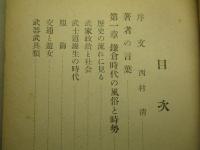 目次
序文 西村清
著者の言葉
第一章 鎌倉時代の風俗と時勢
歴史の流れに見る
武家政治と社会
武士道誕生の時代
服飾
交通と遊女
武器武具類